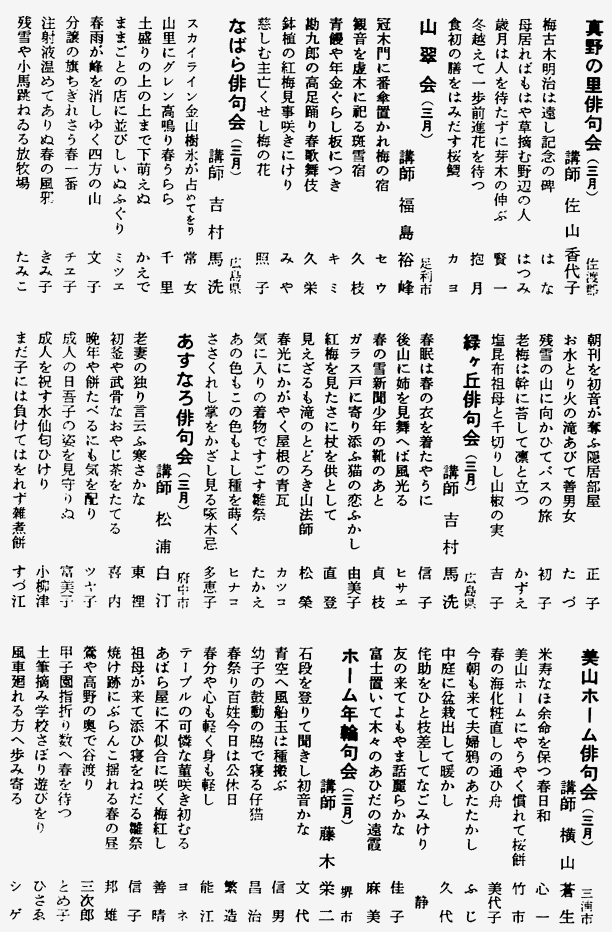 真野の里俳句会（三月） 佐渡郡
講師 佐山香代子
梅古木明治は遠し記念の碑 はな
母居ればもはや草摘む野辺の人 はつみ
歳月は人を待たずに芽木の伸ぶ 賢一
冬越えて一歩前進花を待つ 抱月
食初の膳をはみだす桜鯛 カヨ
山翠会（三月） 足利市
講師 福島裕峰
冠木門に番傘置かれ梅の宿 セウ
観音を虚木に祀る斑雪宿 久枝
青饅や年金ぐらし板につき キミ
勘九郎の高足踊り春歌舞伎 久栄
鉢植の紅梅見事咲きにけり みや
慈しむ主亡くせし梅の花 照子
なばら俳句会（三月） 広島県
講師 吉村馬洗
スカイライン金山樹氷が占めてをり 常女
山里にグレン高鳴り春うらら 千里
土盛りの上の上まで下萌えぬ かえで
ままごとの店に並びしいぬふぐり ミツエ
春雨が峰を消しゆく四方の山 文子
分譲の旗ちぎれさう春一番 チエ子
注射液温めてありぬ春の風邪 きみ子
残雪や小馬跳ねゐる放牧場 たみこ
朝刊を初音が奪ふ隠居部屋 正子
お水とり火の滝あびて善男女 たづ
残雪の山に向かひてバスの旅 初子
老梅は幹に苔して凛と立つ かずえ
塩昆布祖母と千切りし山椒の実 吉子
緑ヶ丘俳句会（三月） 広島県
講師 吉村馬洗
春眠は春の衣を着たやうに 信子
後山に姉を見舞へば風光る ヒサエ
春の雪新聞少年の靴のあと 貞枝
ガラス戸に寄り添ふ猫の恋ふかし 由美子
紅梅を見たさに杖を供として 直登
見えざるも滝のとどろき山法師 松榮
春光にかがやく屋根の青瓦 カツコ
気に入りの着物ですごす雛祭 たかえ
あの色もこの色もよし種を蒔く ヒナコ
ささくれし掌をかざし見る啄木忌 多恵子
あすなろ俳句会（三月） 府中市
講師 松浦白汀
老妻の独り言云ふ寒さかな 東裡
初釜や武骨なおやじ茶をたてる 喜内
晩年や餅たべるにも気を配り ツヤ子
成人の日吾子の姿を見守りぬ 富美子
成人を祝す水仙匂ひけり 小柳津
まだ子には負けてはをれず雑煮餅 すづ江
美山ホーム俳句会（三月） 三浦市
講師 横山蒼生
米寿なほ余命を保つ春日和 心一
美山ホームにやうやく慣れて桜餅 竹市
春の海化粧直しの通ひ舟 美代子
今朝も来て夫婦鴉のあたたかし ふじ
中庭に盆栽出して暖かし 久代
侘助をひと枝差してなごみけり 静
友の来てよもやま話麗らかな 佳子
富士置いて木々のあひだの遠霞 麻美
ホーム年輪句会（三月） 堺市
講師 藤木栄二
石段を登りて聞きし初音かな 文代
青空へ風船玉は種搬ぶ 信男
幼子の鼓動の脇で寝る仔猫 昌治
春祭り百姓今日は公休日 繁造
春分や心も軽く身も軽し 能江
テーブルの可憐な菫咲き初むる ヨネ
あばら屋に不似合に咲く梅紅し 善晴
祖母が来て添ひ寝をねだる雛祭 信子
焼け跡にぶらんこ揺れる春の昼 邦雄
鶯や高野の奥で谷渡り 三次郎
甲子園指折り数へ春を待つ とめ子
土筆摘み学校さぼり遊びをり ひさゑ
風車廻れる方へ歩み寄る シゲ